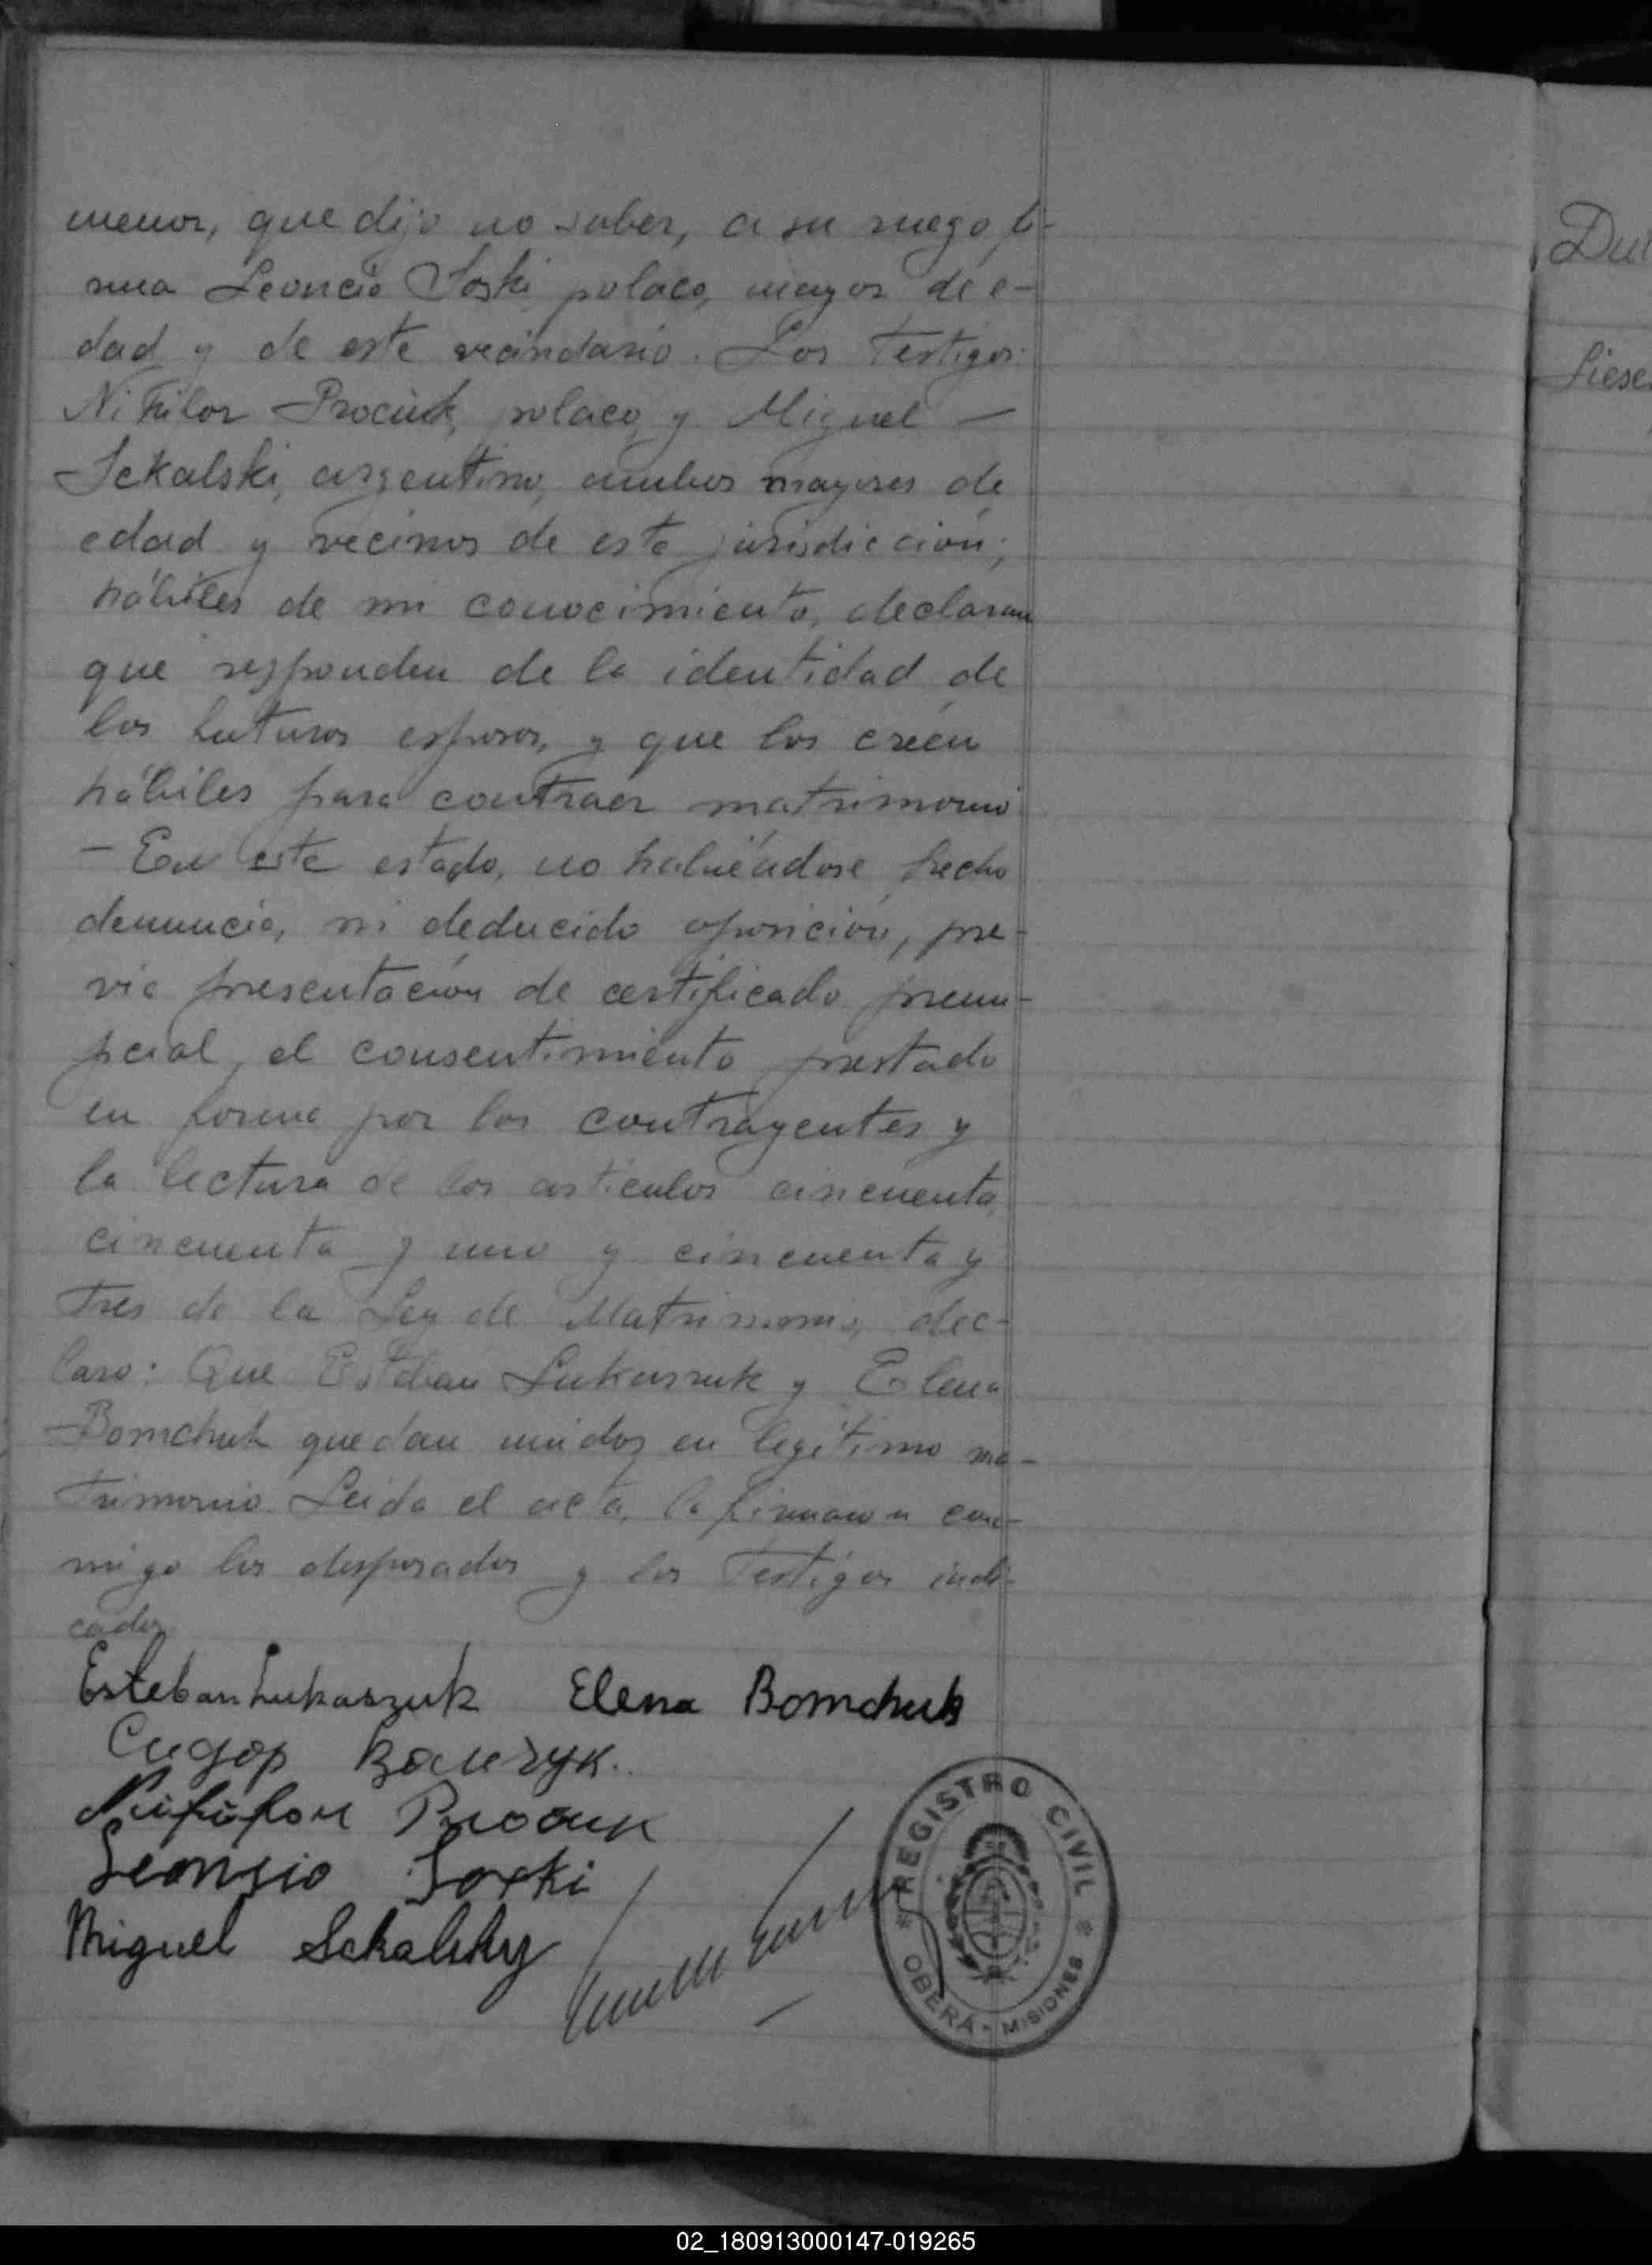 menor, que dijo no saber, a su ruego fi-
rma Leoncio Soski polaco, mayor de e-
dad y de este vecindario. Los Testigos:
Nikilor Prociuk, polaco, y Miguel —
Sekalski, argentino, ambos mayores de
edad y vecinos de esta jurisdicción;
hábiles de mi conocimiento, declaran
que responden de la identidad de
los futuros esposos, y que los creén
hábiles para contraer matrimonio
- En este estado, no habiéndose hecho
denuncia, ni deducido oposición, pre-
via presentación de certificado prenu-
pcial, el consentimiento prestado
en forma por los contrayentes y
la lectura de los artículos cincuenta,
cincuenta y uno y cincuenta y
tres de la Ley de Matrimonio, dec-
laro: Que Esteban Lukaszuk y Elena
Bomchuk quedan unidos en legítimo ma-
trimonio. Leida el acta, la firmaron con-
migo los desposados y los Testigos indi-
cados
Esteban Lukaszuk Elena Bomchuk
Сидор
Prociuk
Leonsio Soski
Miguel Sekalsky
REGISTRO CIVIL
OBERÁ - MISIONES
Liese
02_180913000147-019265